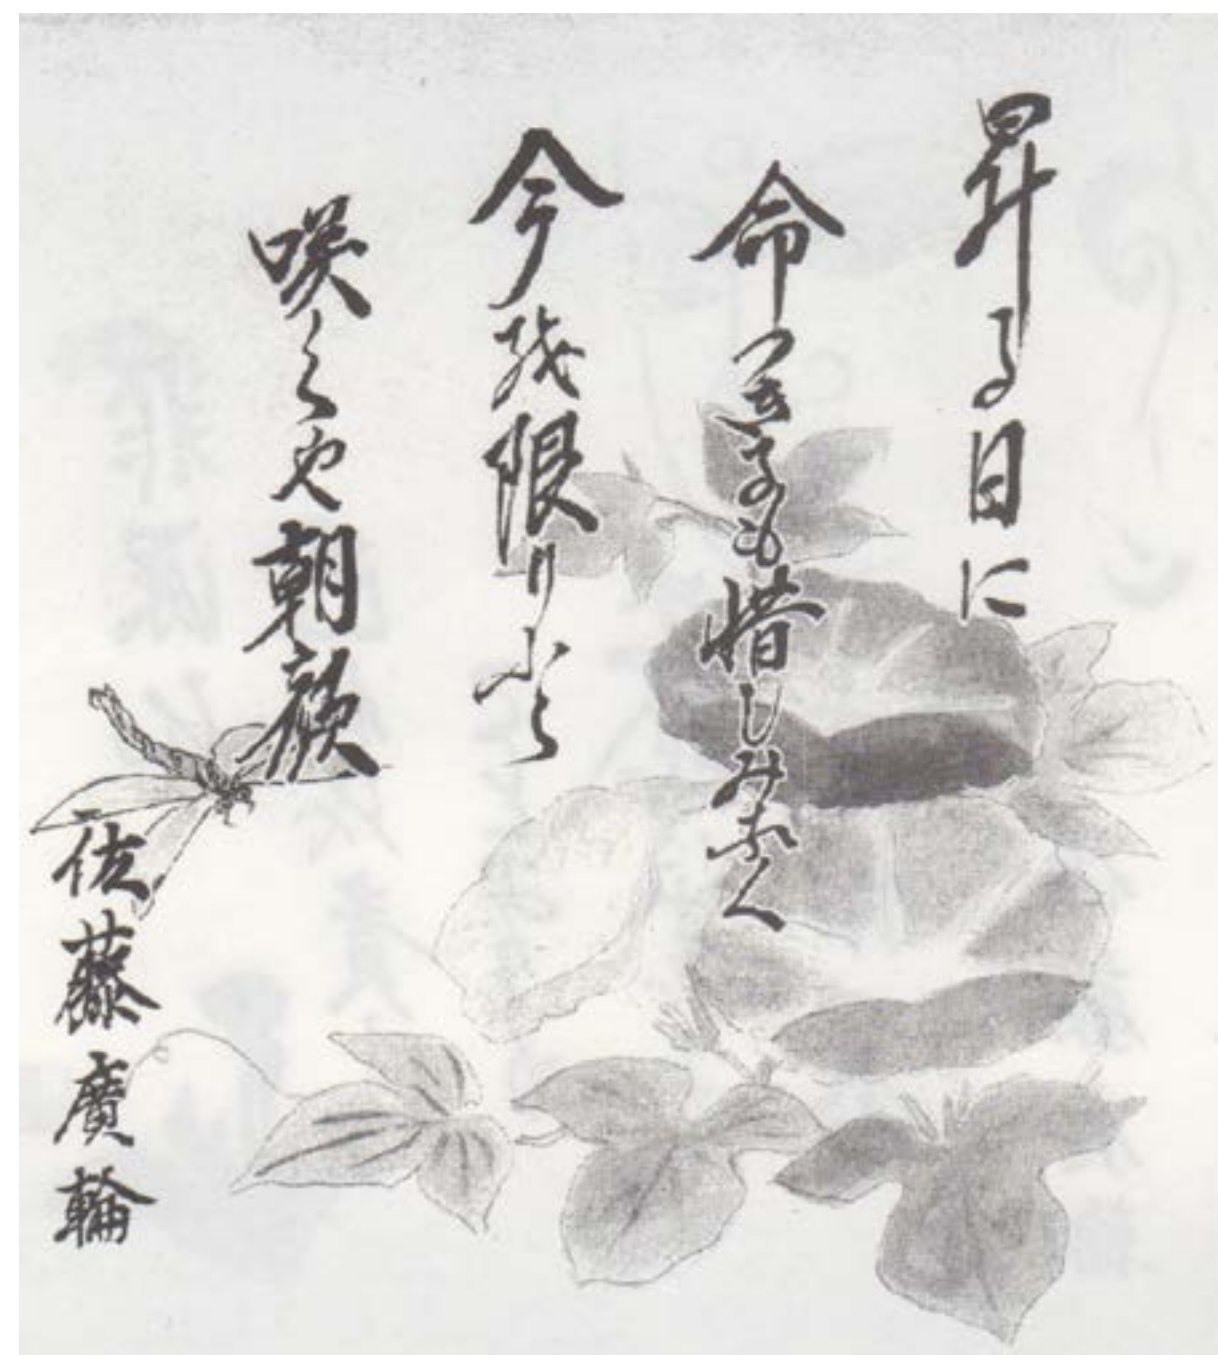 昇る日に
命つきるも惜しみなく
今を限りと
咲くや朝顔
佐藤廣輪